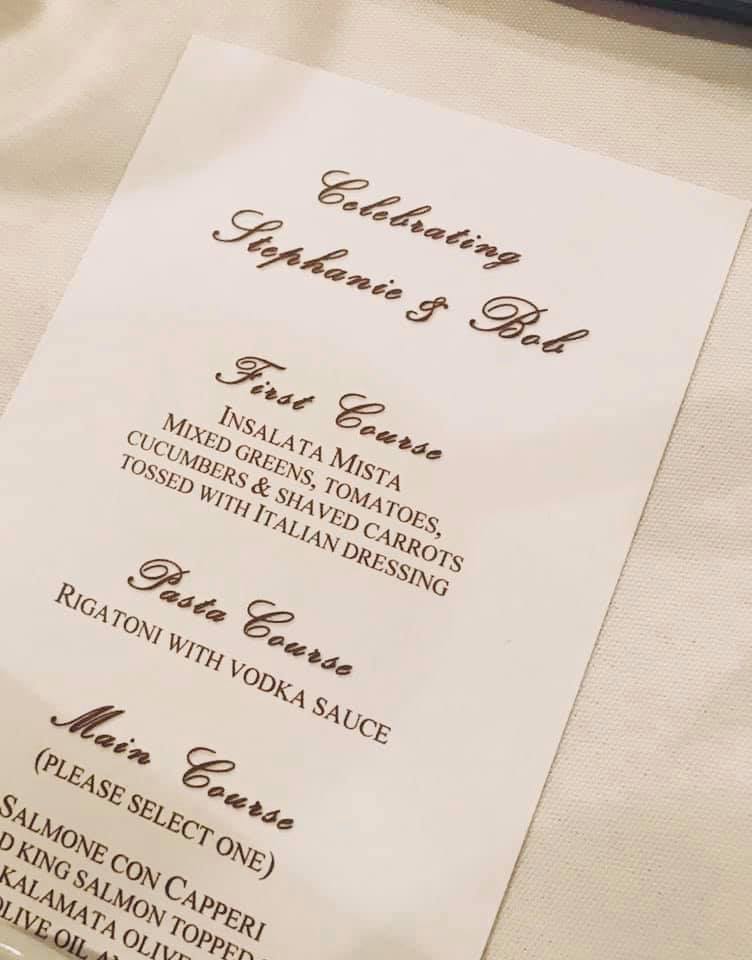 Celebrating
Stephanie & Bob
First Course
INSALATA MISTA
MIXED GREENS, TOMATOES,
CUCUMBERS & SHAVED CARROTS
TOSSED WITH ITALIAN DRESSING
Pasta Course
RIGATONI WITH VODKA SAUCE
Main Course
(PLEASE SELECT ONE)
SALMONE CON CAPPERI
KING SALMON TOPPED
KALAMATA OLIVE
OLIVE OIL